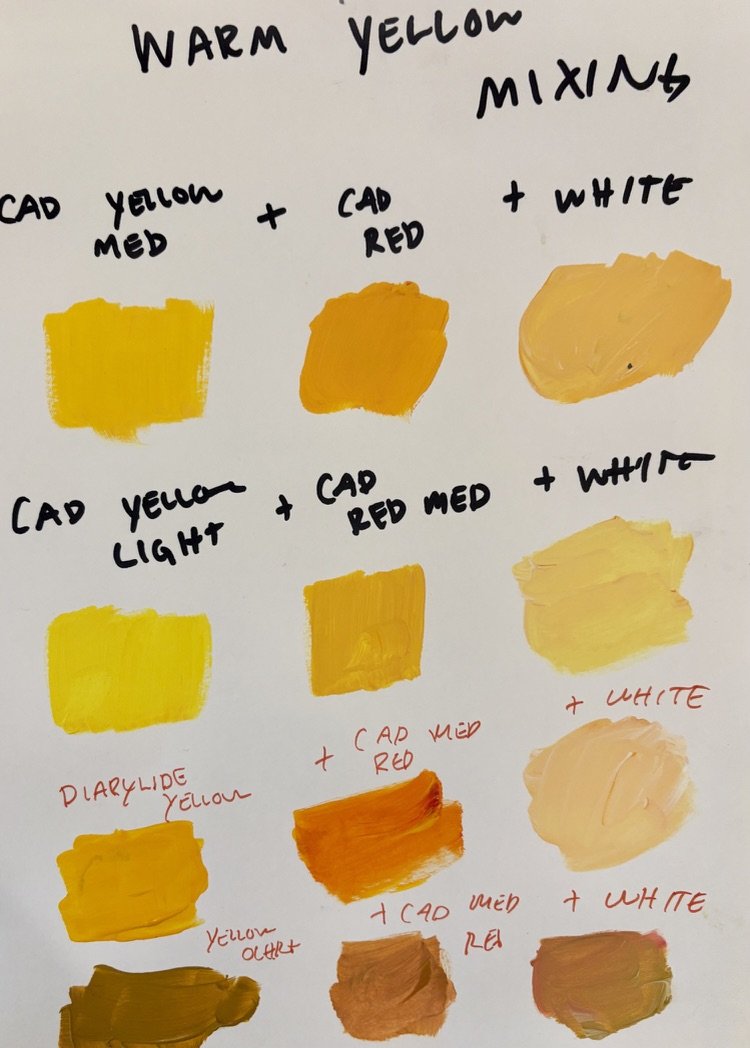 WARM YELLOW
MIXING
CAD YELLOW
MED
+ CAD
RED
+ WHITE
CAD YELLOW
LIGHT
+ CAD
RED MED
+ WHITE
DIARYLIDE
YELLOW
+ CAD MED
RED
+ WHITE
YELLOW
OCHRE
+ CAD MED
RED
+ WHITE